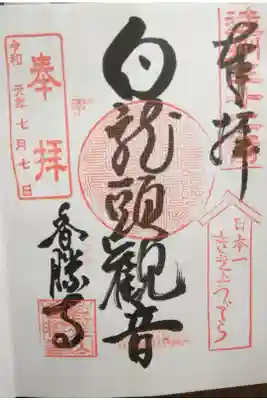 奉拝
日本一
ききょうでら
白龍頭観音
奉拝
令和元年七月七日
香勝寺